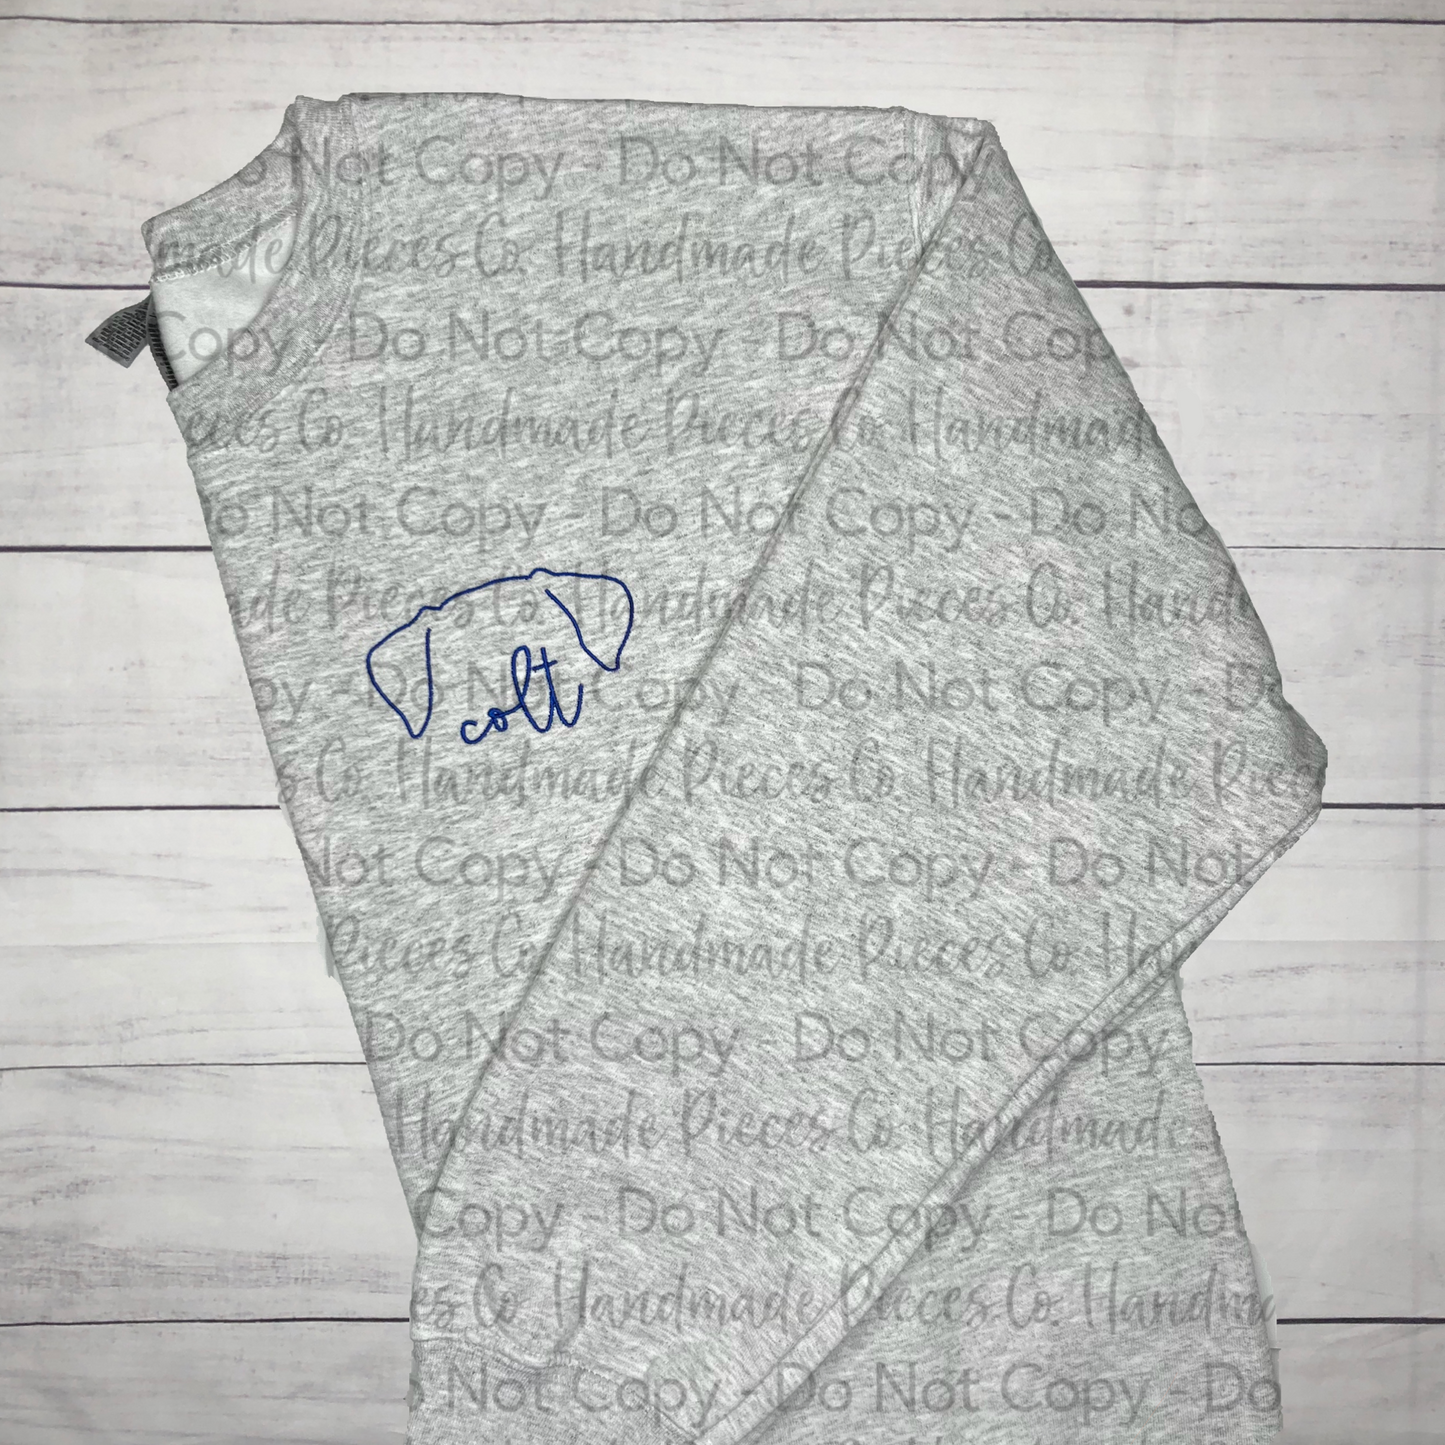 o Not Copy - Do Not Copy
made Pieces Co. Handmade Pieces Co
Copy - Do Not Copy - Do Not Cop
eces Co. Handmade Pieces Co. Handmade
o Not Copy - Do Not Copy - Do No
de Pieces Co. Handmade Pieces Co. Handma
py - Do Not Copy - Do Not Copy - Do
colt
s Co. Handmade Pieces Co. Handmade Piec
Not Copy - Do Not Copy - Do Not
Pieces Co. Handmade Pieces Co. Ha
Do Not Copy - Do Not Copy
Handmade Pieces Co. Handmade
Copy - Do Not Copy - Do Not
es Co. Handmade Pieces Co. Handma
o Not Copy - Do Not Copy - Do